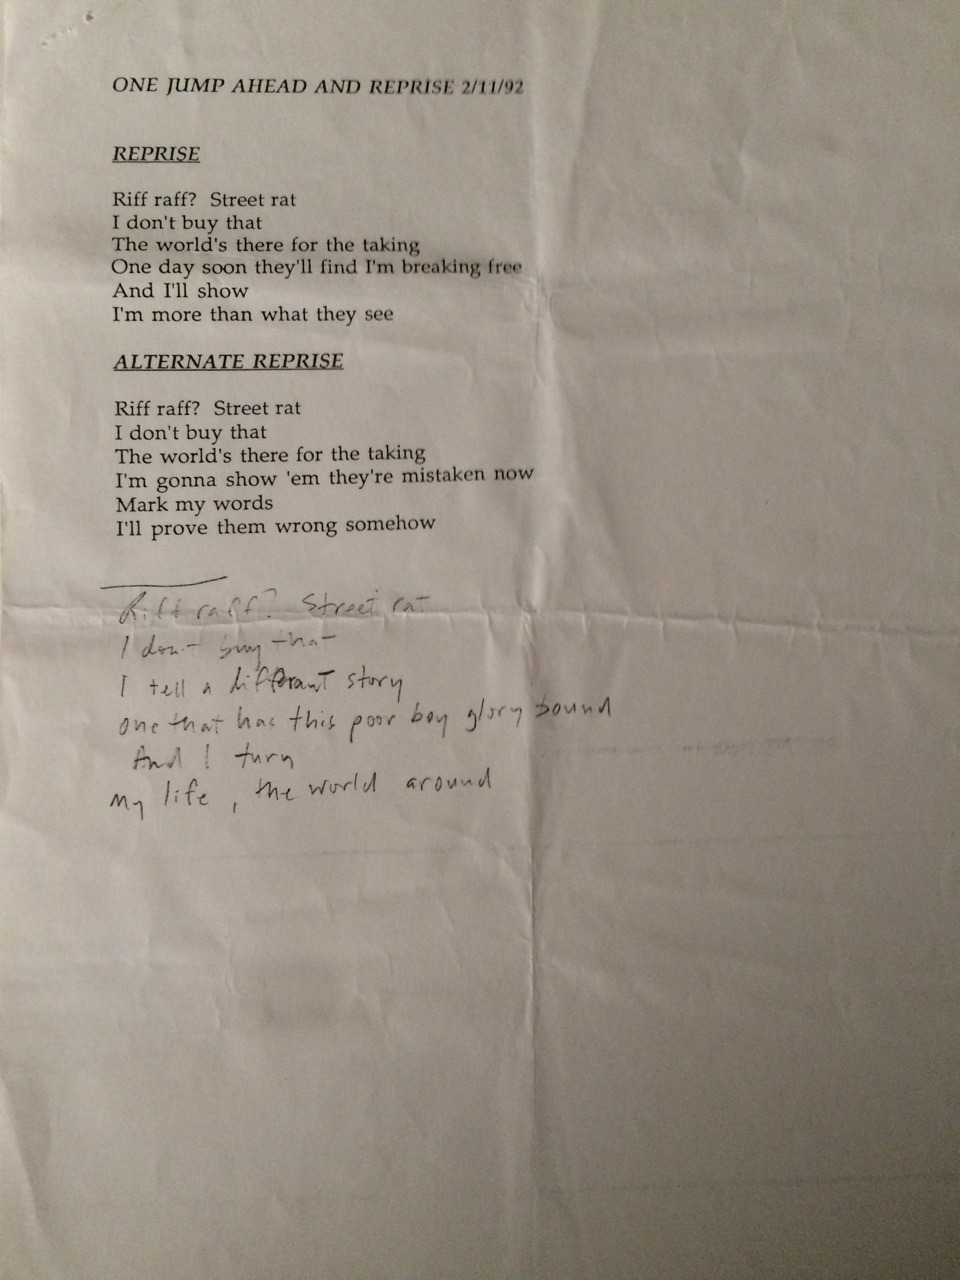 ONE JUMP AHEAD AND REPRISE 2/11/92
REPRISE
Riff raff?  Street rat
I don't buy that
The world's there for the taking
One day soon they'll find I'm breaking free
And I'll show
I'm more than what they see
ALTERNATE REPRISE
Riff raff?  Street rat
I don't buy that
The world's there for the taking
I'm gonna show 'em they're mistaken now
Mark my words
I'll prove them wrong somehow
Riff raff? Street rat
I don't buy that
I tell a different story
one that has this poor boy glory bound
And I turn
my life, the world around